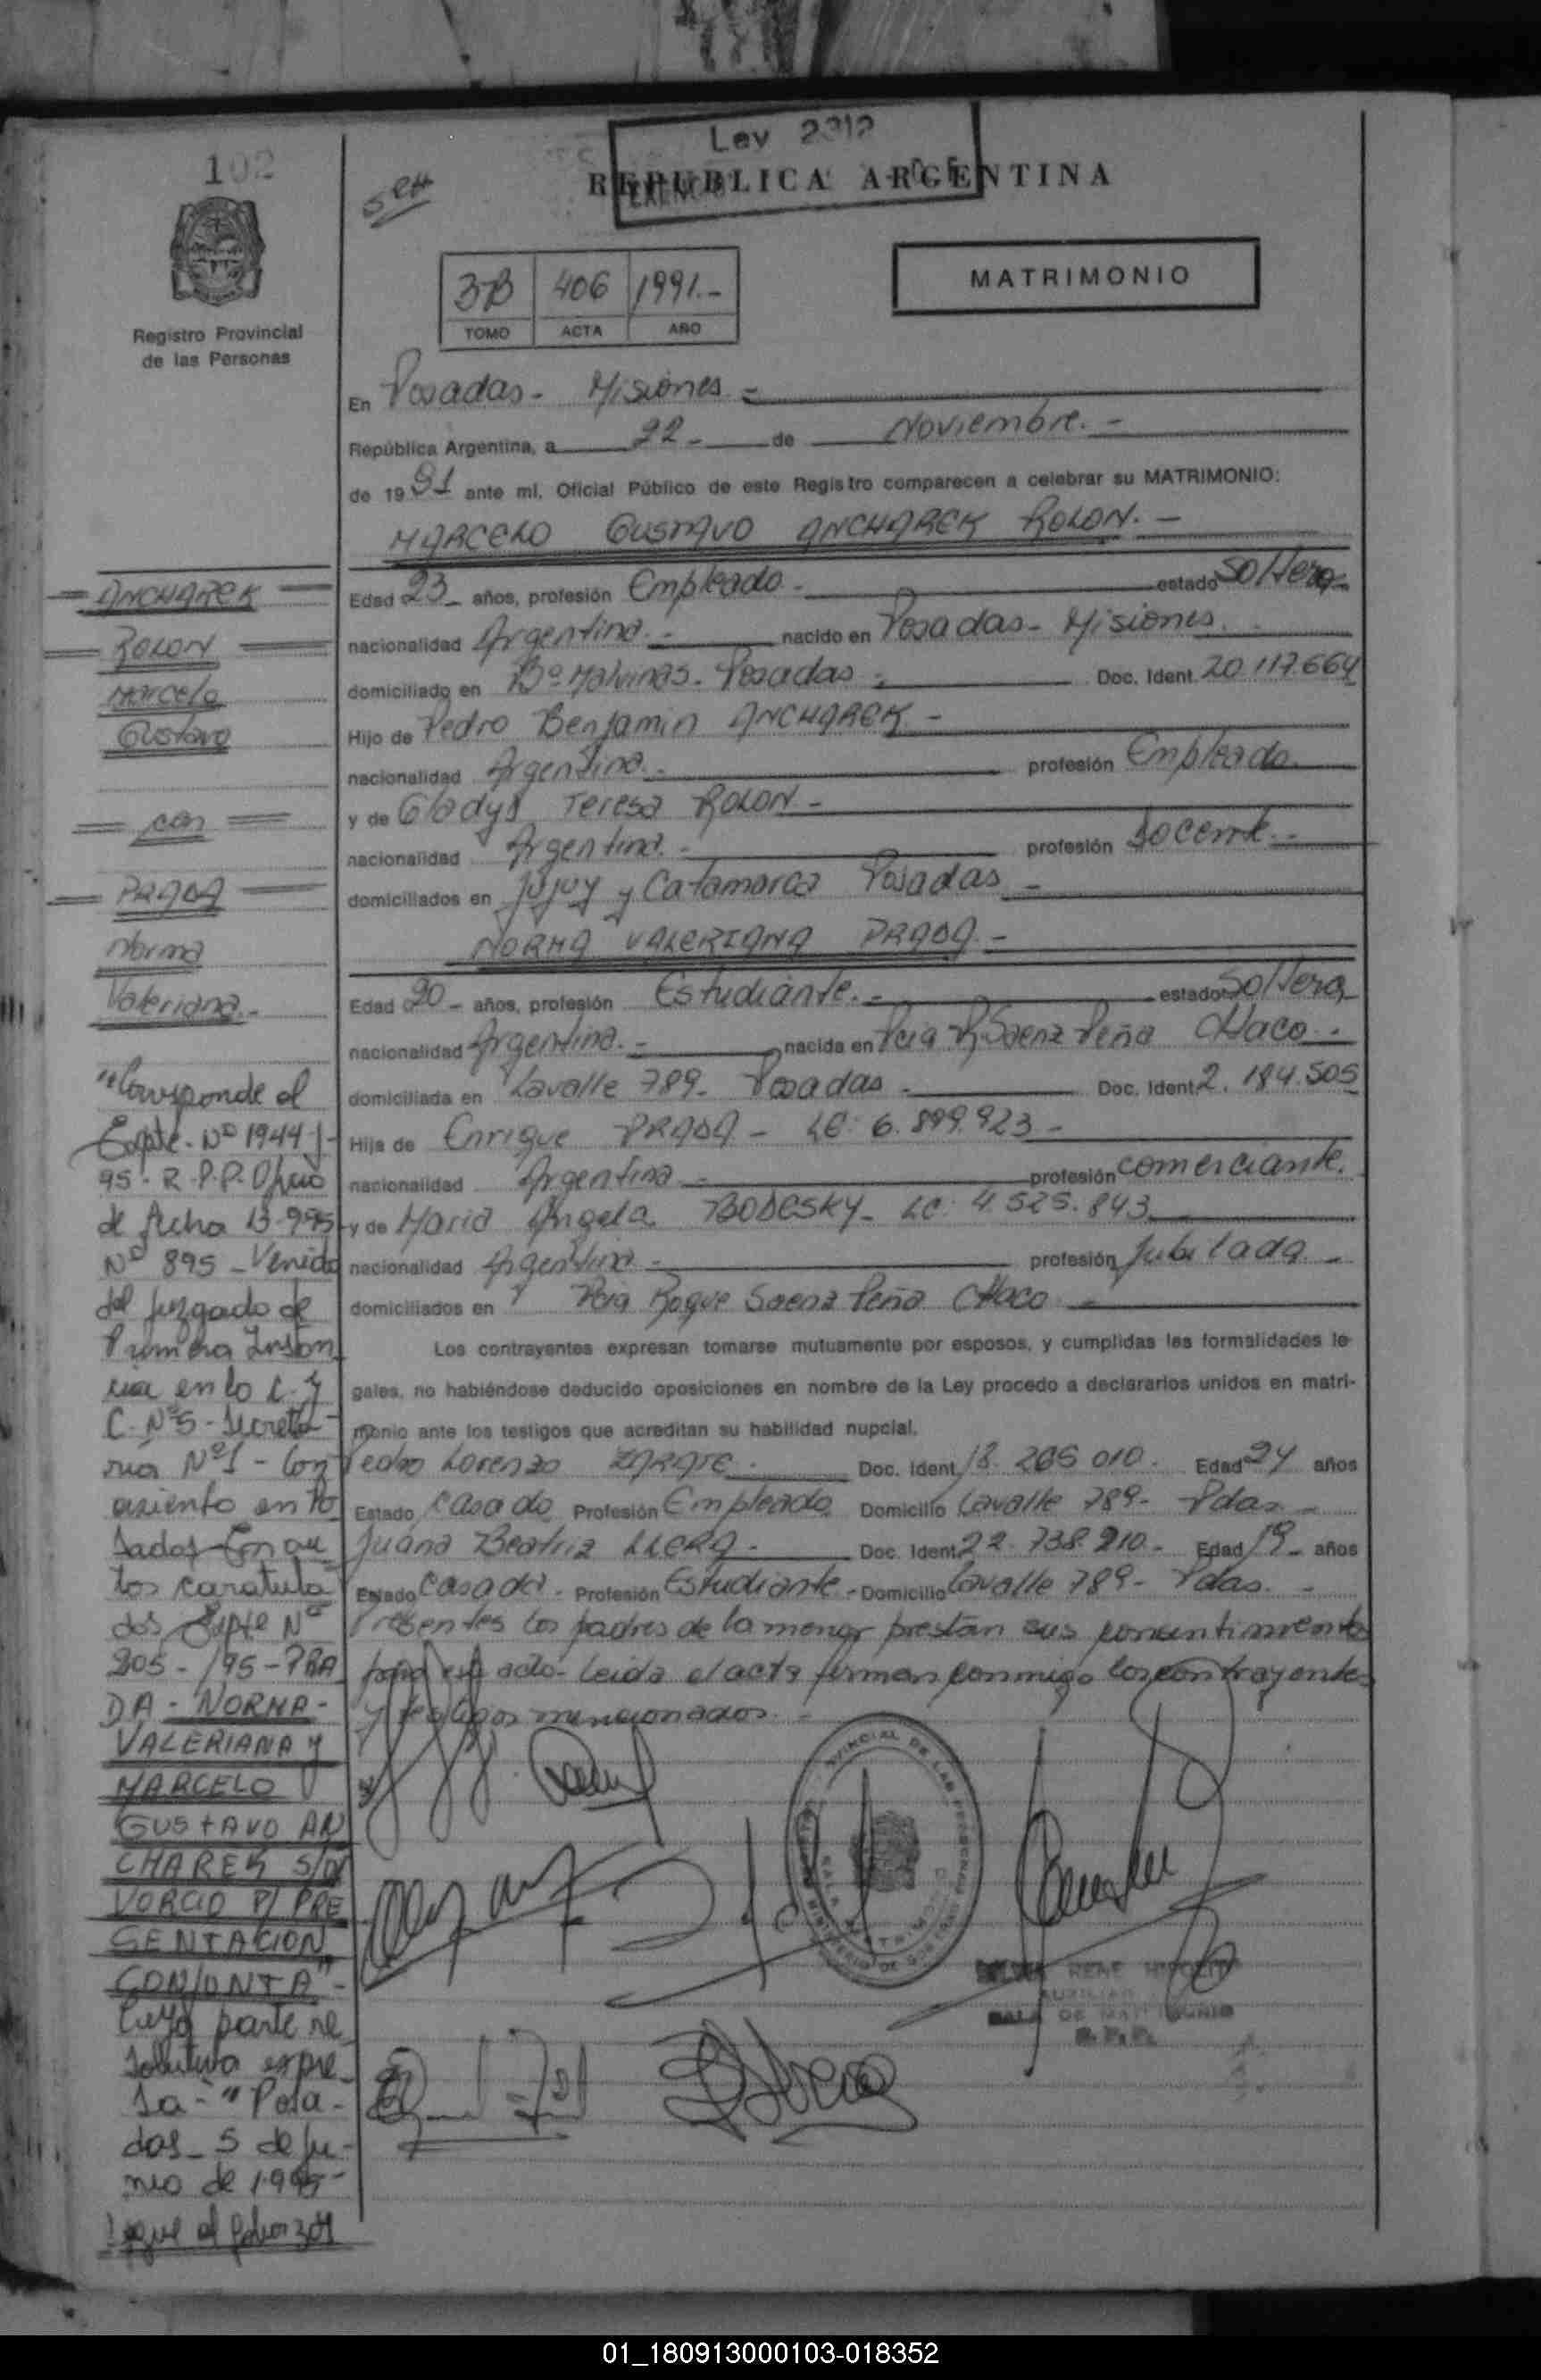 102
Ley 2312
REPUBLICA ARGENTINA
Registro Provincial
de las Personas
3B 406 1991.-
TOMO ACTA AÑO
MATRIMONIO
En Posadas - Misiones =
República Argentina, a 22- de Noviembre.-
de 1991 ante mi, Oficial Público de este Registro comparecen a celebrar su MATRIMONIO:
MARCELO GUSTAVO ANCHAREK ROLON.-
Edad 23_ años, profesión Empleado - estado Soltero-
nacionalidad Argentina.- nacido en Posadas - Misiones.
domiciliado en Bº Malvinas - Posadas - Doc. Ident. 20.117.664
Hijo de Pedro Benjamin ANCHAREK -
nacionalidad Argentina.- profesión Empleado.
y de Gladys Teresa ROLON -
nacionalidad Argentina.- profesión Docente.-
domiciliados en Jujuy y Catamarca Posadas -
NORMA VALERIANA PRADA.-
Edad 20- años, profesión Estudiante.- estado Soltera
nacionalidad Argentina.- nacida en Pcia R. Saenz Peña CHaco.
domiciliada en Lavalle 789- Posadas - Doc. Ident. 2. 184.505
Hija de Enrique PRADA - LE: 6.899.923-
nacionalidad Argentina - profesión comerciante.
y de Maria Angela BODESKY- LC: 4.525.843
nacionalidad Argentina - profesión Jubilada.-
domiciliados en Pcia Roque Saenz Peña CHaco -
Los contrayentes expresan tomarse mutuamente por esposos, y cumplidas las formalidades le-
gales, no habiéndose deducido oposiciones en nombre de la Ley procedo a declararlos unidos en matri-
monio ante los testigos que acreditan su habilidad nupcial.
Pedro Lorenzo ZARATE. Doc. Ident. 18.265.010. Edad 24 años
Estado Casado Profesión Empleado Domicilio Lavalle 789- Pdas -
Juana Beatriz LLERA - Doc. Ident. 22.738.210- Edad 19- años
Estado Casada - Profesión Estudiante - Domicilio Lavalle 789- Pdas. -
Presentes los padres de la menor prestan sus consentimiento
para este acto- Leida el acta firman conmigo los contrayentes
y testigos mencionados -
ANCHAREK
ROLON
Marcelo
Gustavo
con
PRADA
Norma
Valeriana.-
"Corresponde al
Expte. Nº 1944-J-
95- R.P.P. Oficio
de fecha 13-9-95
Nº 895 - Venido
del Juzgado de
Primera Instan
cia en lo C. y
C. Nº5 - Secreta-
ria Nº1 - Con
asiento en Po
sadas- En au
tos caratula
dos Expte Nº
205-/95-PRA
DA - NORMA -
VALERIANA y
MARCELO
GUSTAVO AN
CHAREK S/DI
VORCIO P/ PRE
SENTACION
CONJUNTA"-
Cuya parte re
solutiva expre
sa - "Posa-
das_ 5 de Ju-
nio de 1995-
RENE HIPOLITO
AUXILIAR
SALA DE MATRIMONIO
R.P.P.
01_180913000103-018352